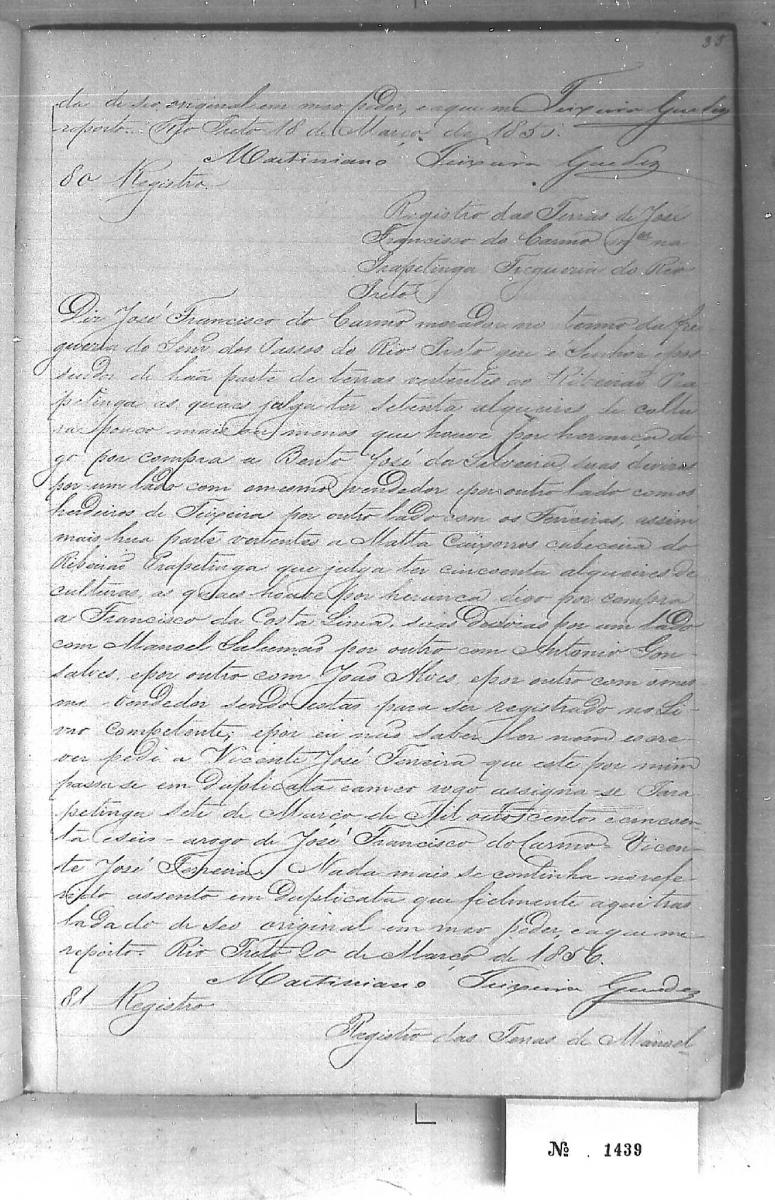 35
da de seo original em meo poder, e aque me Teixeira Guedez
reporto. Rio Preto 18 de Março de 1856.
Martiniano Teixeira Guedez
80 Registro
Registro das Terras de José
Francisco do Carmo na
Prapetinga Freguezia do Rio
Preto
Diz José Francisco do Carmo morador no termo da fre
guezia do Senr. dos Passos do Rio Preto que é Senhor e pos
suidor de hũa parte de terras vertentes ao Ribeirão Pra
petinga as quaes julga ter setenta alqueires, de cultu
ra pouco mais ou menos que houve por herança di
go por compra a Bento José da Silveira suas divizas
por um lado com o mesmo vendedor e por outro lado com os
herdeiros de Teixeira por outro lado com os Ferreiras, assim
mais hua parte vertentes a Matta cabeceira do
Ribeirão Prapetinga que julga ter cincoenta alqueires de
culturas, as quaes houve por herança digo por compra
a Francisco da Costa Lima, suas divizas por um lado
com Manoel Salumão por outro com Antonio Gon
salves, e por outro com João Alves, e por outro com o mes
mo vendedor sendo estas para ser registrado no Li
vro competente; e por eu não saber ler nem escre
ver pedi a Vicente José Ferreira que este por mim
passa se em duplicata e a meo rogo assigna-se Para
petinga sete de Março de Mil outocentos e cincoen
ta e seis - arogo de José Francisco do Carmo - Vicen
te José Ferreira. Nada mais se continha no refe
rido assento em Duplicata que fielmente aqui tras
ladado de seo original em meo poder, e aque me
reporto. Rio Preto 20 de Março de 1856.
Martiniano Teixeira Guedez
81 Registro
Registro das Terras de Manoel
№ 1439